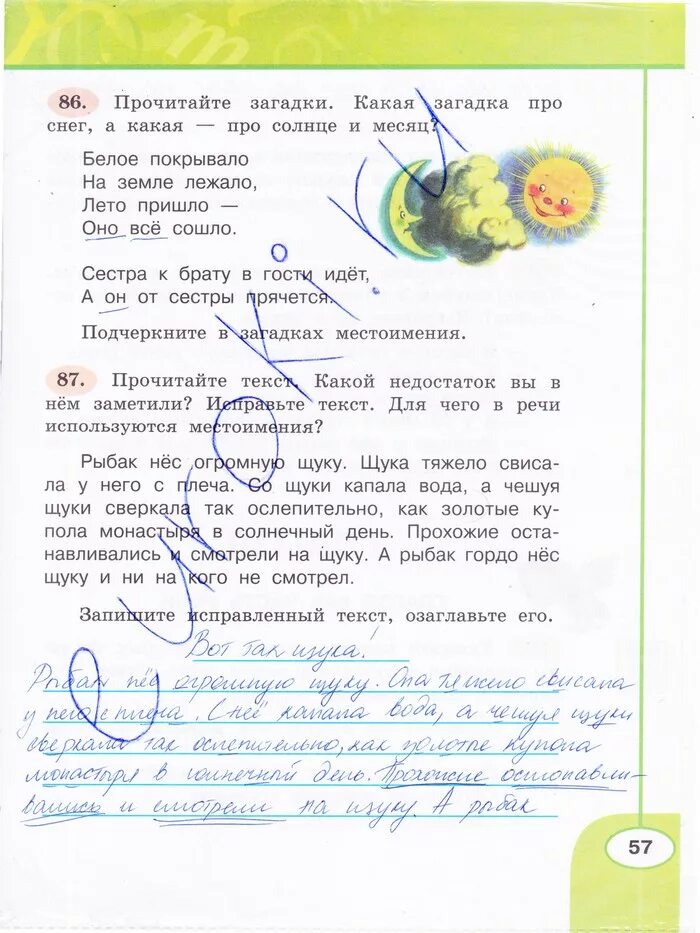 86. Прочитайте загадки. Какая загадка про
снег, а какая — про солнце и месяц?
Белое покрывало
На земле лежало,
Лето пришло —
Оно всё сошло.
Сестра к брату в гости идёт,
А он от сестры прячется.
Подчеркните в загадках местоимения.
87. Прочитайте текст. Какой недостаток вы в
нём заметили? Исправьте текст. Для чего в речи
используются местоимения?
Рыбак нёс огромную щуку. Щука тяжело свиса-
ла у него с плеча. Со щуки капала вода, а чешуя
щуки сверкала так ослепительно, как золотые ку-
пола монастыря в солнечный день. Прохожие оста-
навливались и смотрели на щуку. А рыбак гордо нёс
щуку и ни на кого не смотрел.
Запишите исправленный текст, озаглавьте его.
Вот так щука!
Рыбак нёс огромную щуку. Она тяжело свисала
у него с плеча. С неё капала вода, а чешуя щуки
сверкала так ослепительно, как золотые купола
монастыря в солнечный день. Прохожие останавли-
вались и смотрели на щуку. А рыбак
57